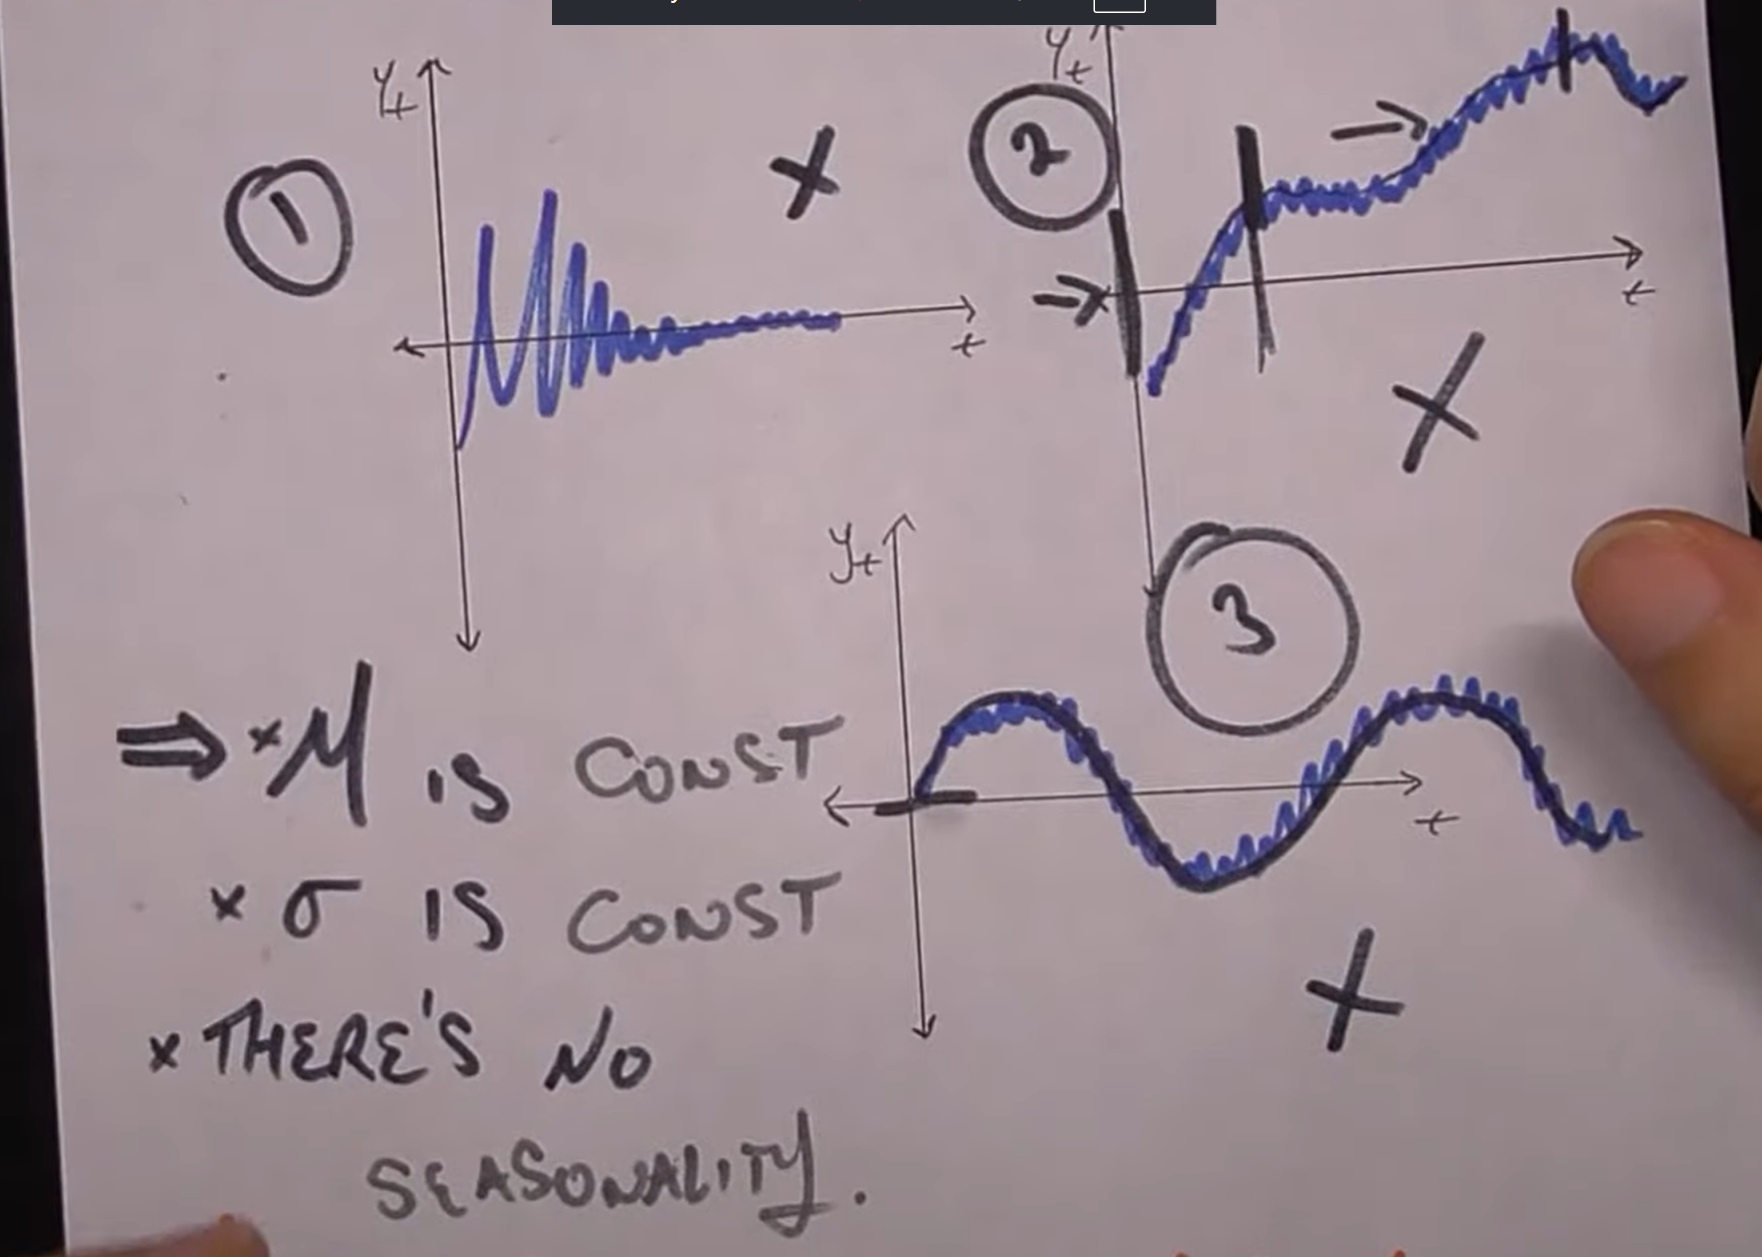 Yt
1
t
Yt
2
t
Yt
3
t
⇒ × μ is CONST
× σ IS CONST
× THERE'S NO
SEASONALITY.